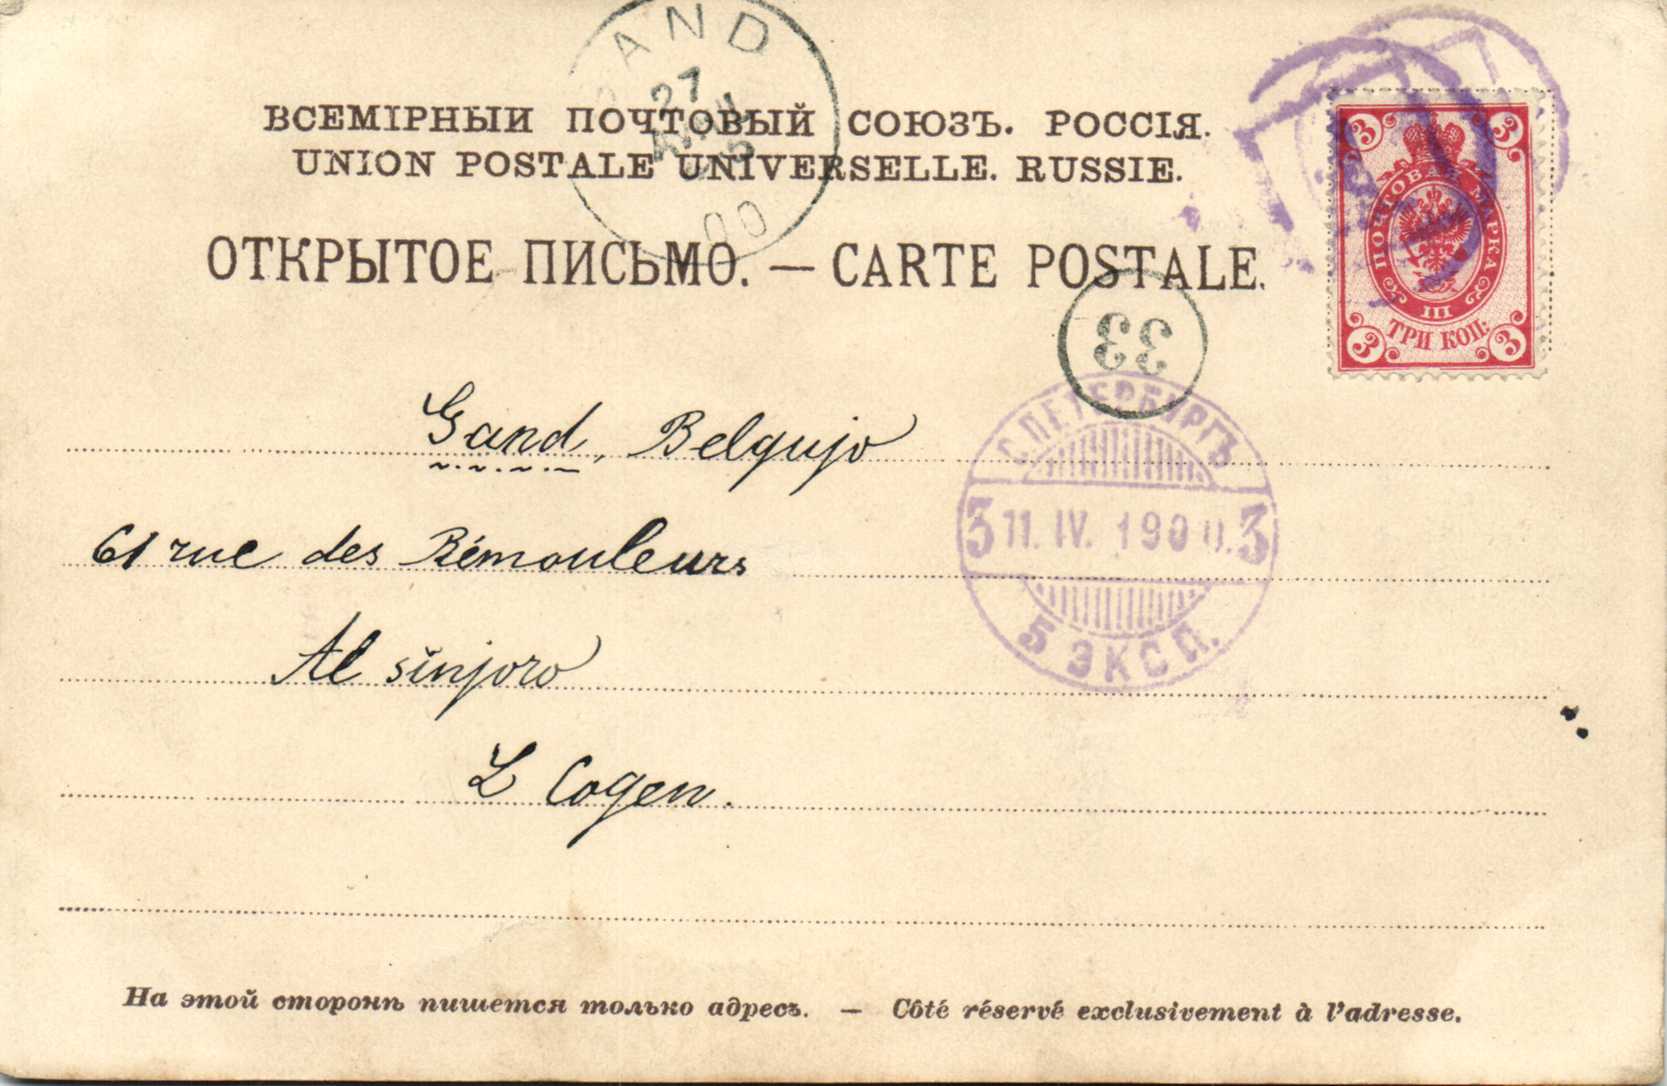 GAND
27
00
ВСЕМІРНЫЙ ПОЧТОВЫЙ СОЮЗЪ. РОССІЯ.
UNION POSTALE UNIVERSELLE. RUSSIE.
ОТКРЫТОЕ ПИСЬМО. — CARTE POSTALE.
3 3
ПОЧТОВАЯ МАРКА
III
ТРИ КОП:
3 3
33
С.ПЕТЕРБУРГЪ
3 11. IV. 1900. 3
5 ЭКСП.
Gand, Belgujo
61 rue des Rémouleurs
Al sinjoro
L Cogen.
На этой сторонѣ пишется только адресъ. — Côté réservé exclusivement à l'adresse.